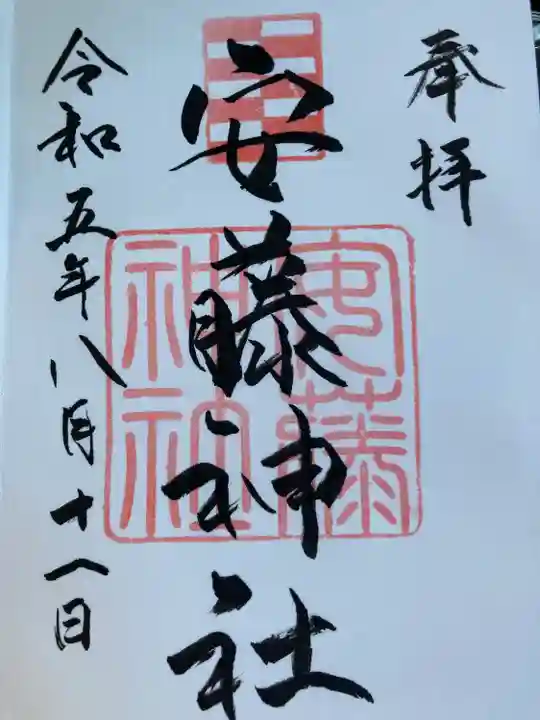 奉拝
安藤神社
安藤
神社
令和五年八月十八日